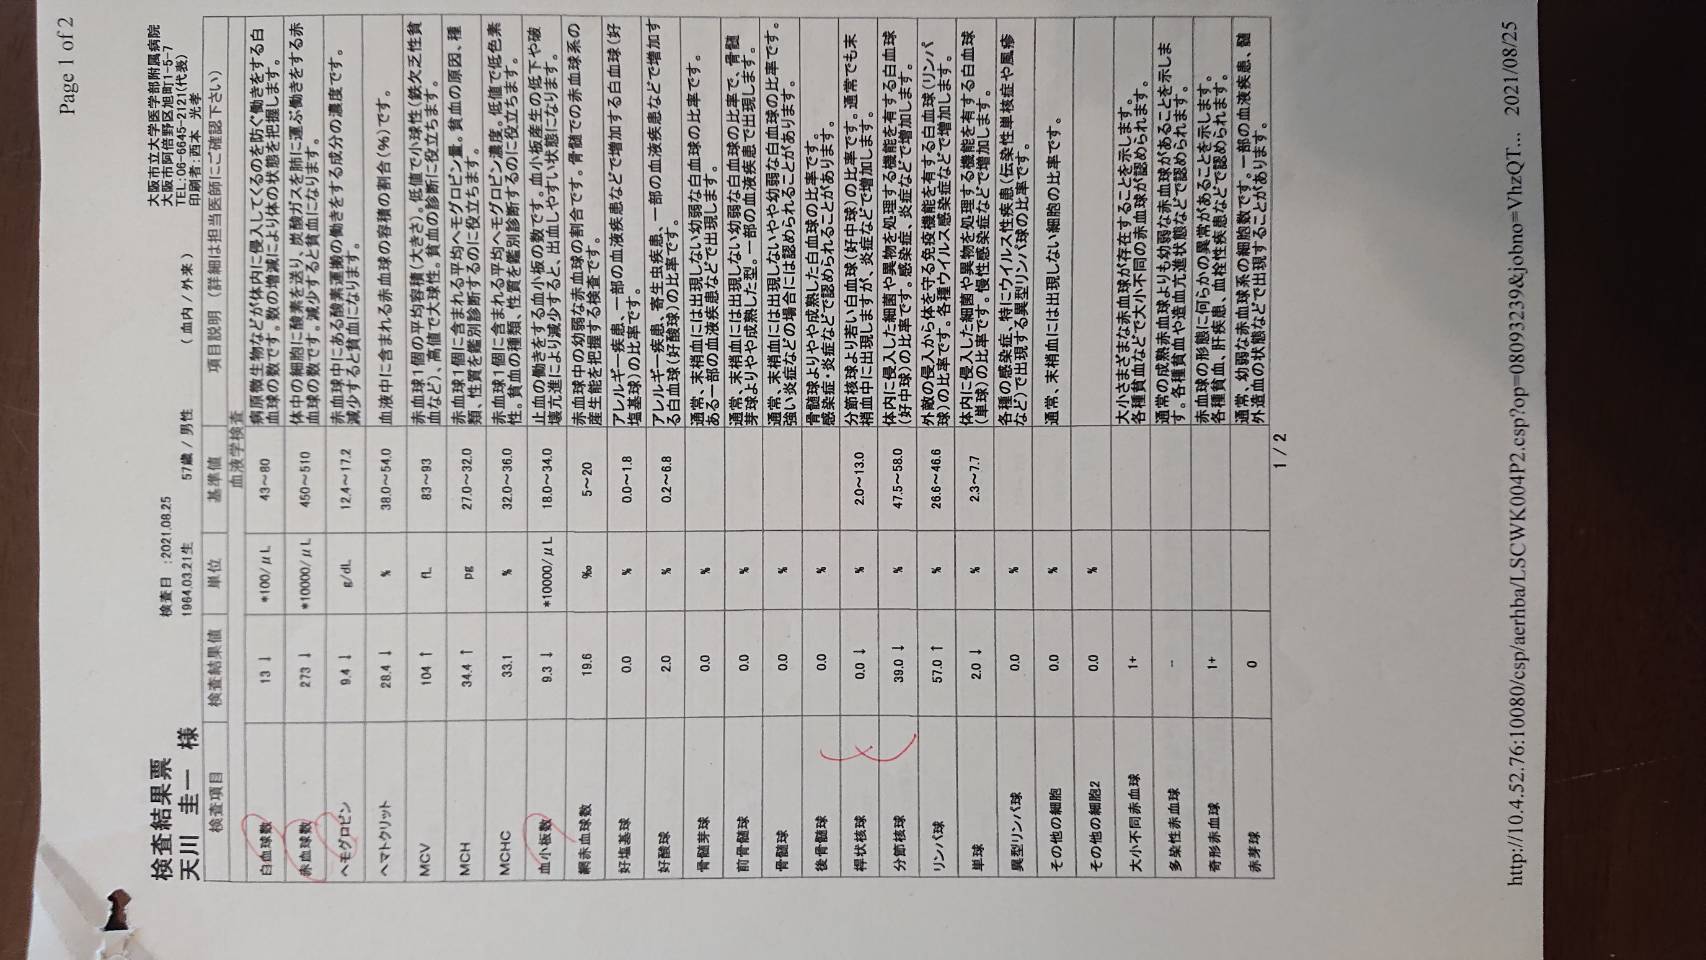 Page 1 of 2
検査結果票
天川 圭一 様
検査日 :2021.08.25
1964.03.21生 57歳 / 男性 ( 血内 / 外来 )
大阪市立大学医学部附属病院
大阪市阿倍野区旭町1-5-7
TEL:06-6645-2121(代表)
印刷者:西本 光孝
検査項目 検査結果値 単位 基準値 項目説明(詳細は担当医師にご確認下さい)
血液学検査
白血球数 13 ↓ *100/μL 43~80 病原微生物などが体内に侵入してくるのを防ぐ働きをする白
血球の数です。数の増減により体の状態を把握します。
赤血球数 273 ↓ *10000/μL 450~510 体中の細胞に酸素を送り、炭酸ガスを肺に運ぶ働きをする赤
血球の数です。減少すると貧血になります。
ヘモグロビン 9.4 ↓ g/dL 12.4~17.2 赤血球中にある酸素運搬の働きをする成分の濃度です。
減少すると貧血になります。
ヘマトクリット 28.4 ↓ % 38.0~54.0 血液中に含まれる赤血球の容積の割合(%)です。
MCV 104 ↑ fL 83~93 赤血球1個の平均容積(大きさ)。低値で小球性(鉄欠乏性貧
血など)、高値で大球性。貧血の診断に役立ちます。
MCH 34.4 ↑ pg 27.0~32.0 赤血球1個に含まれる平均ヘモグロビン量。貧血の原因、種
類、性質を鑑別診断するのに役立ちます。
MCHC 33.1 % 32.0~36.0 赤血球1個に含まれる平均ヘモグロビン濃度。低値で低色素
性。貧血の種類、性質を鑑別診断するのに役立ちます。
血小板数 9.3 ↓ *10000/μL 18.0~34.0 止血の働きをする血小板の数です。血小板産生の低下や破
壊亢進により減少すると、出血しやすい状態になります。
網赤血球数 19.6 ‰ 5~20 赤血球中の幼弱な赤血球の割合です。骨髄での赤血球系の
産生能を把握する検査です。
好塩基球 0.0 % 0.0~1.8 アレルギー疾患、一部の血液疾患などで増加する白血球(好
塩基球)の比率です。
好酸球 2.0 % 0.2~6.8 アレルギー疾患、寄生虫疾患、一部の血液疾患などで増加す
る白血球(好酸球)の比率です。
骨髄芽球 0.0 % 通常、末梢血には出現しない幼弱な白血球の比率です。
ある一部の血液疾患などで出現します。
前骨髄球 0.0 % 通常、末梢血には出現しない幼弱な白血球の比率で、骨髄
芽球よりやや成熟した型。一部の血液疾患で出現します。
骨髄球 0.0 % 通常、末梢血には出現しないやや幼弱な白血球の比率です。
強い炎症などの場合には認められることがあります。
後骨髄球 0.0 % 骨髄球よりやや成熟した白血球の比率です。
感染症・炎症などで認められることがあります。
桿状核球 0.0 ↓ % 2.0~13.0 分節核球より若い白血球(好中球)の比率です。通常でも末
梢血中に出現しますが、炎症などで増加します。
分節核球 39.0 ↓ % 47.5~58.0 体内に侵入した細菌や異物を処理する機能を有する白血球
(好中球)の比率です。感染症、炎症などで増加します。
リンパ球 57.0 ↑ % 26.6~46.6 外敵の侵入から体を守る免疫機能を有する白血球(リンパ
球)の比率です。各種ウイルス感染症などで増加します。
単球 2.0 ↓ % 2.3~7.7 体内に侵入した細菌や異物を処理する機能を有する白血球
(単球)の比率です。慢性感染症などで増加します。
異型リンパ球 0.0 % 各種の感染症、特にウイルス性疾患(伝染性単核症や風疹
など)で出現する異型リンパ球の比率です。
その他の細胞 0.0 % 通常、末梢血には出現しない細胞の比率です。
その他の細胞2 0.0 %
大小不同赤血球 1+ 大小さまざまな赤血球が存在することを示します。
各種貧血などで大小不同の赤血球が認められます。
多染性赤血球 - 通常の成熟赤血球よりも幼弱な赤血球があることを示しま
す。各種貧血や造血亢進状態などで認められます。
奇形赤血球 1+ 赤血球の形態に何らかの異常があることを示します。
各種貧血、肝疾患、血栓性疾患などで認められます。
赤芽球 0 通常、幼弱な赤血球系の細胞数です。一部の血液疾患、髄
外造血の状態などで出現することがあります。
1 / 2
http://10.4.52.76:10080/csp/aerhba/LSCWK004P2.csp?op=08093239&jobno=VhzQT... 2021/08/25